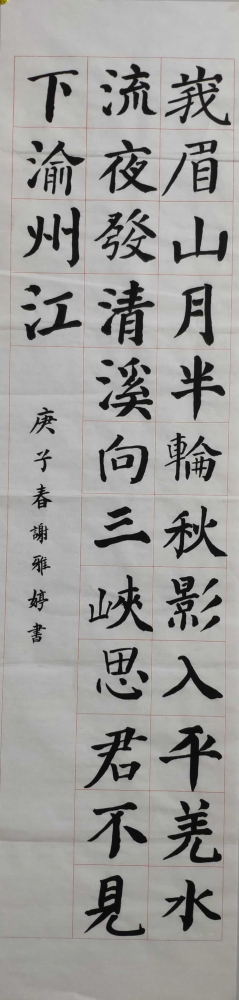 峩眉山月半輪秋影入平羌水
流夜發清溪向三峽思君不見
下渝州江
庚子春謝雅婷書